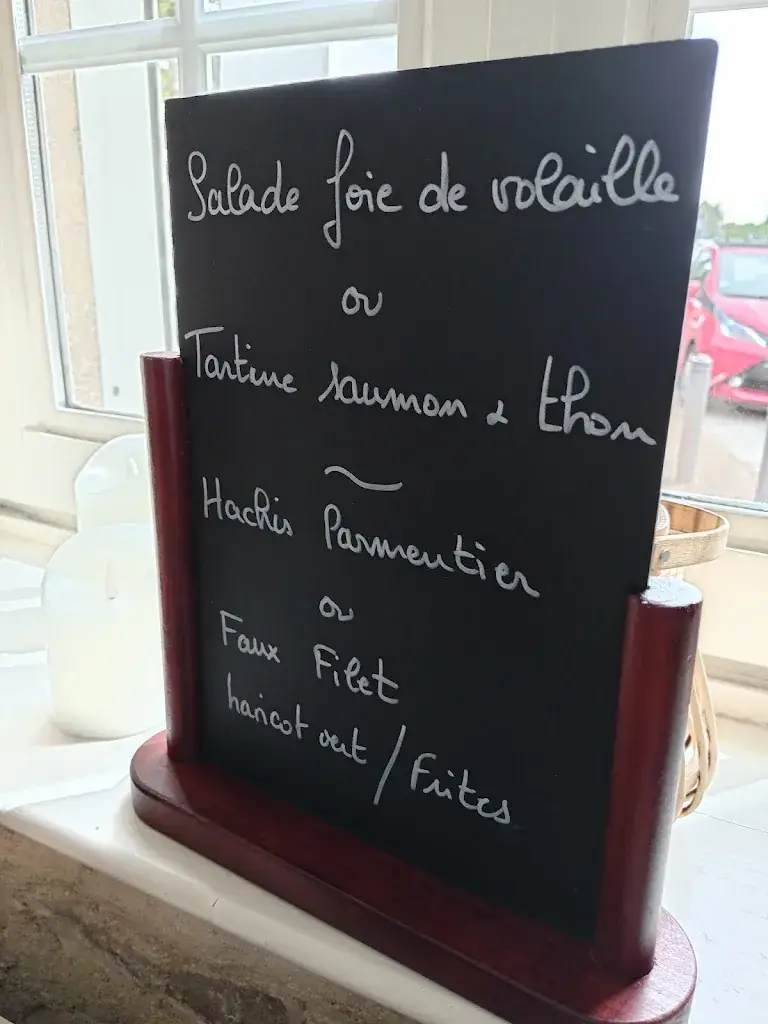 Salade foie de volaille
ou
Tartine saumon & thon
~
Hachis Parmentier
ou
Faux Filet
haricot vert / Frites